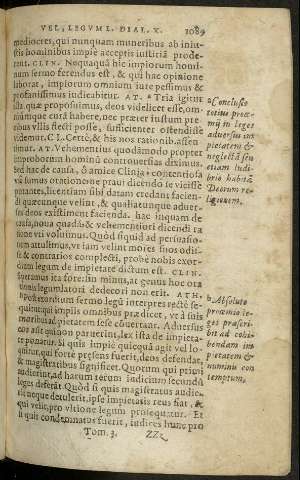 VEL, LEGVM. DIAL. X. 1089
mediocres, qui nunquam muneribus ab iniu-
stis hominibus impie acceptis iustitiā prode-
rent. CLIN. Nequaquā hic impiorum homi-
num sermo ferendus est, & qui hac opinione
laborat, impiorum omnium iure pessimus &
profanissimus iudicabitur. AT. Tria igitur
illa, quæ proposuimus, deos videlicet esse, om-
niumque curā habere, nec præter iustum pre-
cibus vllis flecti posse, sufficienter ostendisse
videmur. CL. Certè, & his nos rationib. assen-
timur. AT. Vehementius quodāmodo propter
improborum hominū controuersias diximus.
sed hac de causa, ô amice Clinia, contentiosa
vsi sumus oratione ne praui dicendo se vicisse
putantes, licentiam sibi datam credant facien-
di quæcunque velint, & qualiacunque aduer-
sus deos existiment facienda. hac inquam de
causa, noua quadā & vehementiori dicendi ra
tione vti volumus. Quòd siquid ad persuasio-
nem attulimus, vt iam velint mores suos odis-
se, & contrarios complecti, probè nobis exor-
dium legum de impietate dictum est. CLIN.
Speramus ita fore: sin minus, at genus hoc ora
tionis legumlatori dedecori non erit. ATH.
b post exordium sermo legū interpres rectè se-
quitur, qui impiis omnibus prædicet, vt à suis
moribus ad pietatem sese conuertant. Aduersus
eos aūt qui non paruerint, lex ista de impieta-
te ponatur. Si quis impiè quicquā agit vel lo-
quitur, qui fortè præsens fuerit, deos defendat,
& magistratibus significet. Quorum qui primi
audierint, ad harum rerum iudicium secundū
leges deferāt. Quòd si quis magistratus audie-
rit neque detulerit, ipse impietatis reus fiat, &
qui velit, pro vltione legum prosequatur. Et
si quis condemnatus fuerit, iudices hunc pro
Tom. 3. ZZz
a Conclusio
totius proœ-
mij in leges
aduersus im
pietatem &
neglectā seu
etiam ludi-
brio habitā
Deorum re-
ligionem.
b Absoluto
proœmio le-
ges præscri-
bit ad cohi-
bendam im
pietatem &
numinis con
temptum.